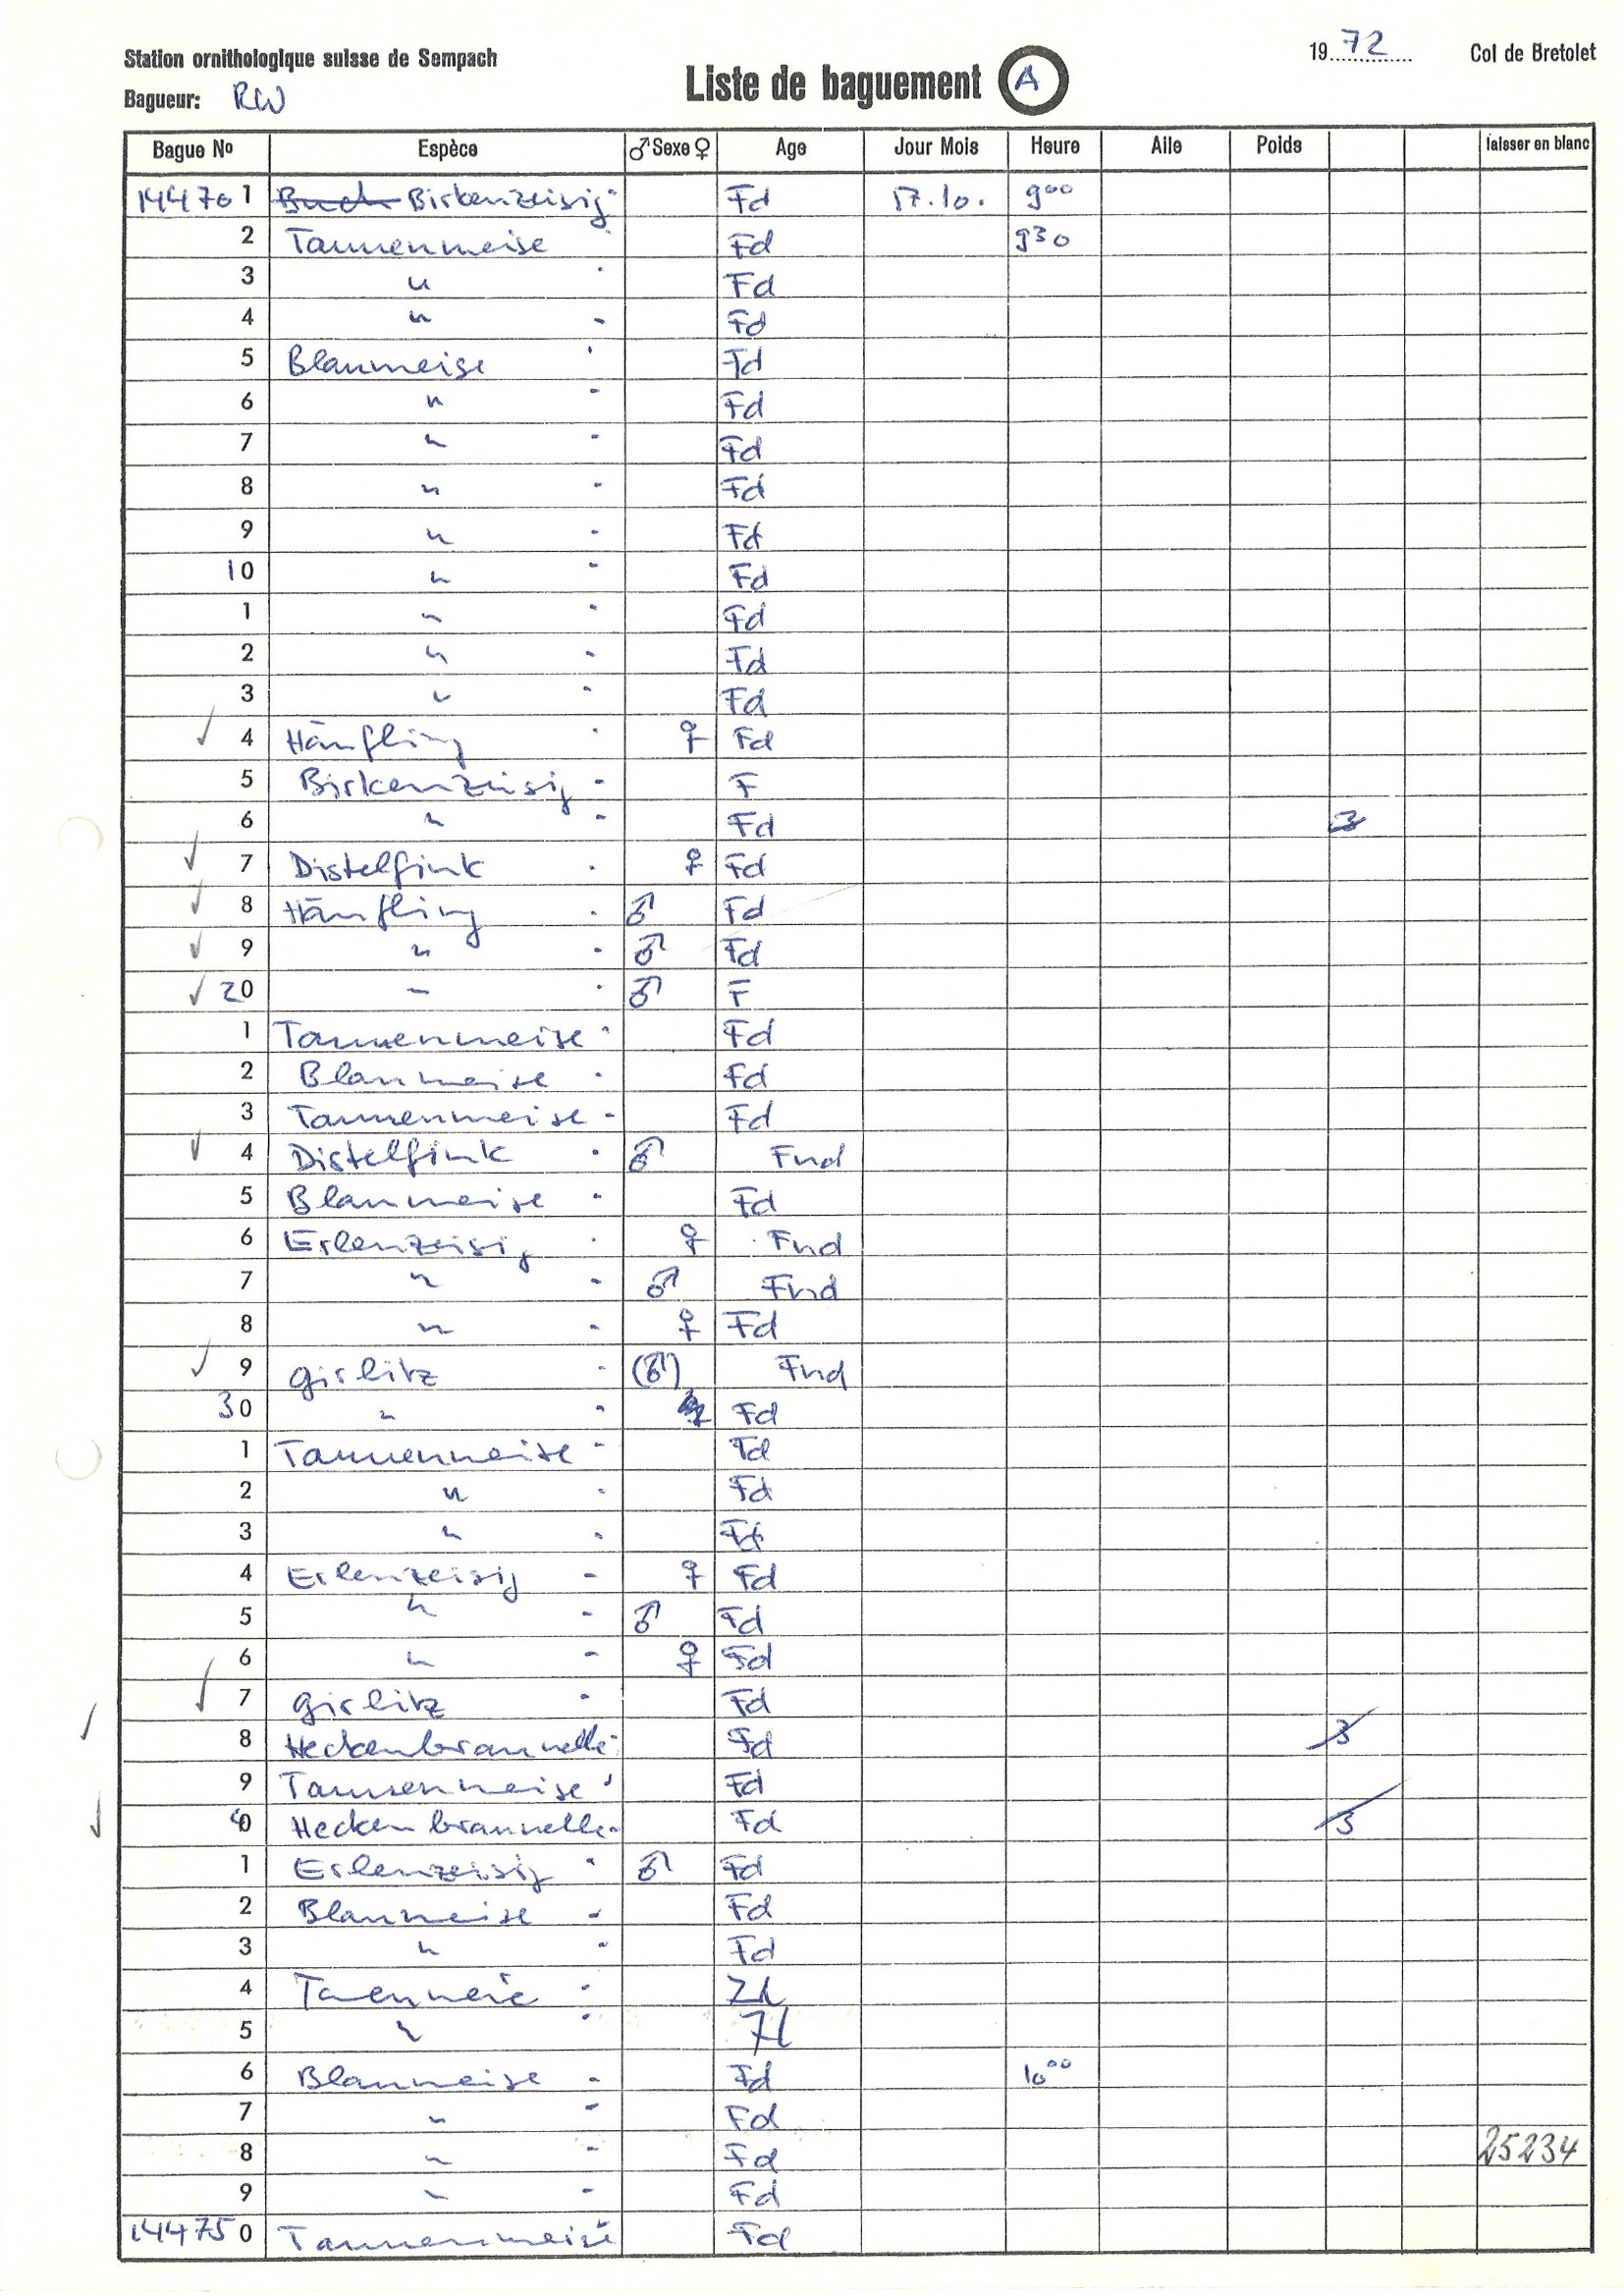 Station ornithologique suisse de Sempach
19 72 Col de Bretolet
Bagueur: RW
Liste de baguement A
Bague No Espèce ♂ Sexe ♀ Age Jour Mois Heure Aile Poids laisser en blanc
144701 Birkenzeisig Fd 17.10. 9 00
2 Tannenmeise Fd 9 30
3 " Fd
4 " Fd
5 Blaumeise Fd
6 " Fd
7 " Fd
8 " Fd
9 " Fd
10 " Fd
1 " Fd
2 " Fd
3 " Fd
✓ 4 Hänfling ♀ Fd
5 Birkenzeisig F
6 " Fd
✓ 7 Distelfink ♀ Fd
✓ 8 Hänfling ♂ Fd
✓ 9 " ♂ Fd
✓ 20 " ♂ F
1 Tannenmeise Fd
2 Blaumeise Fd
3 Tannenmeise Fd
✓ 4 Distelfink ♂ Fnd
5 Blaumeise Fd
6 Erlenzeisig ♀ Fnd
7 " ♂ Fnd
8 " ♀ Fd
✓ 9 Girlitz (♂) Fnd
30 " Fd
1 Tannenmeise Fd
2 " Fd
3 " Fd
4 Erlenzeisig ♀ Fd
5 " ♂ Fd
6 " ♀ Fd
✓ 7 Girlitz Fd
✓ 8 Heckenbraunelle Fd 3
9 Tannenmeise Fd
✓ 40 Heckenbraunelle Fd 3
1 Erlenzeisig ♂ Fd
2 Blaumeise Fd
3 " Fd
4
5 "
6 Blaumeise Fd 10 00
7 " Fd
8 " Fd 25234
9 " Fd
144750 Tannenmeise Fd